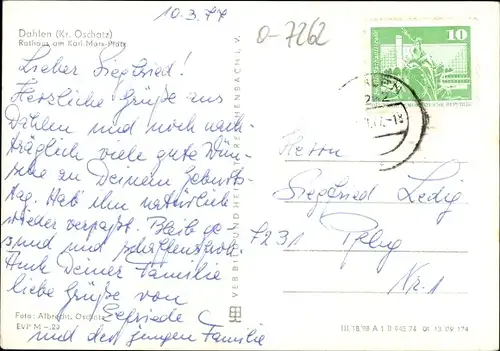 10.3.77
O-7262
Dahlen (Kr. Oschatz)
Rathaus am Karl-Marx-Platz
Lieber Siegfried!
Herzliche Grüße aus
Dahlen und noch nach-
träglich viele gute Wün-
sche zu Deinem Geburts-
tag. Hab ihn natürlich
wieder verpaßt. Bleib ge
sund und schaffensfroh.
Auch Deiner Familie
liebe Grüße von
Elfriede
und der jungen Familie
Foto: Albrecht, Oschatz
EVP M -,20
VERBUNDHE REICHENBACH i. V.
10
DEUTSCHE DEMOKRATISCHE REPUBLIK
Herrn
Siegfried Ledig
7231
Nr. 1
III/18/98 A 1 B 945/74 01 13 09 174